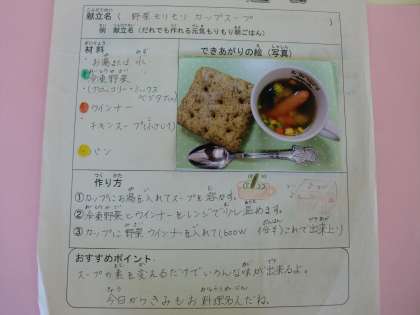 献立名（ 野菜モリモリ カップスープ ）
例 献立名（だれでも作れる元気もりもり朝ごはん）
材料
できあがりの絵（写真）
お湯または水
冷凍野菜
(ブロッコリー・ミックス
ベジタブル)
ウインナー
チキンスープ
パン
作り方
①カップにお湯を入れてスープを溶かす。
②冷凍野菜とウインナーをレンジで 温めます。
③カップに野菜 ウインナーを入れて(600W これで出来上り
おすすめポイント
スープの素を変えるだけでいろんな味が出来るよ。
今日からきみもお料理名人だね。